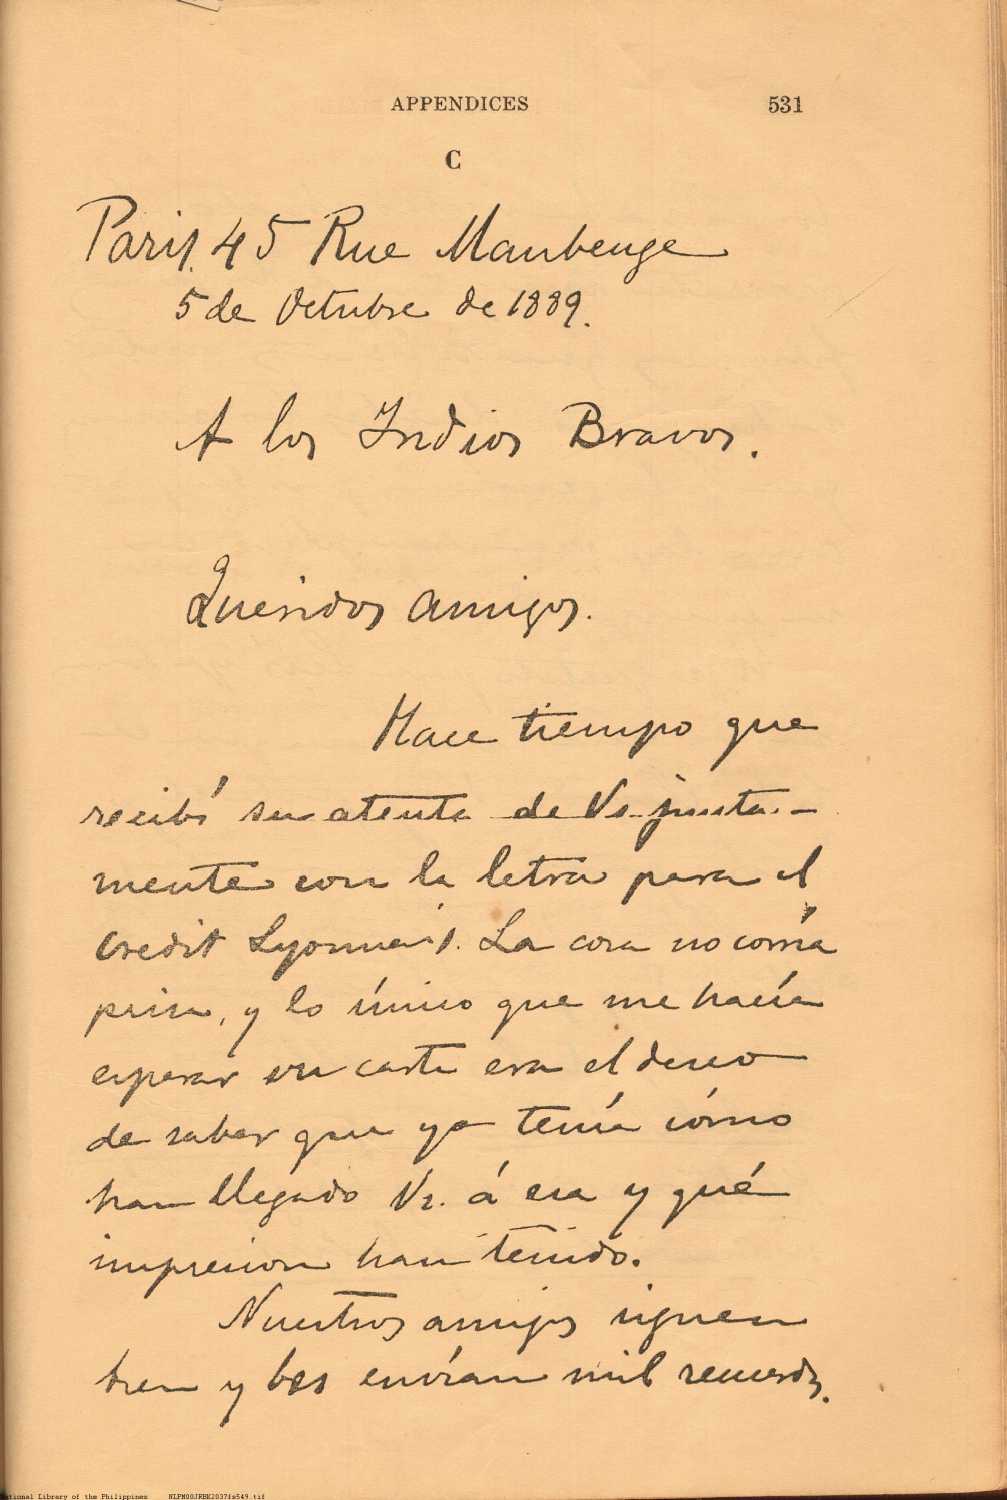 APPENDICES 531
C
Paris, 45 Rue Maubeuge
5 de Octubre de 1889.
A los Indios Bravos.
Queridos amigos.
Hace tiempo que
recibí su atenta de Vs. junta-
mente con la letra para el
Credit Lyonnais. La cosa no corría
prisa, y lo único que me hacía
esperar su carta era el deseo
de saber que yo tenía cómo
han llegado Vs. á esa y qué
impresion han tenido.
Nuestros amigos siguen
bien y les envían mil recuerdos.
National Library of the Philippines NLPM00JRBK2037fs549.tif